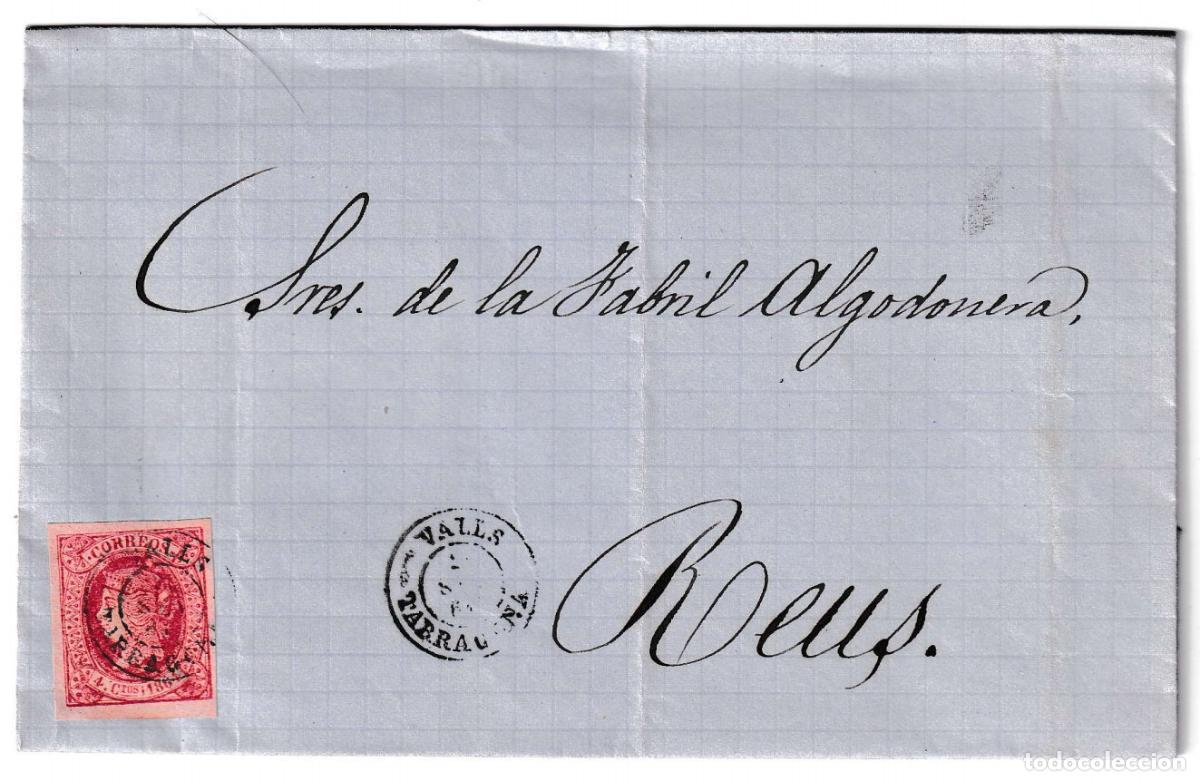 Sres. de la Fabril Algodonera,
Reus.
VALLS
TARRAGONA
CORREOS
VALLS
TARRAGONA
4 CTOS
todocoleccion